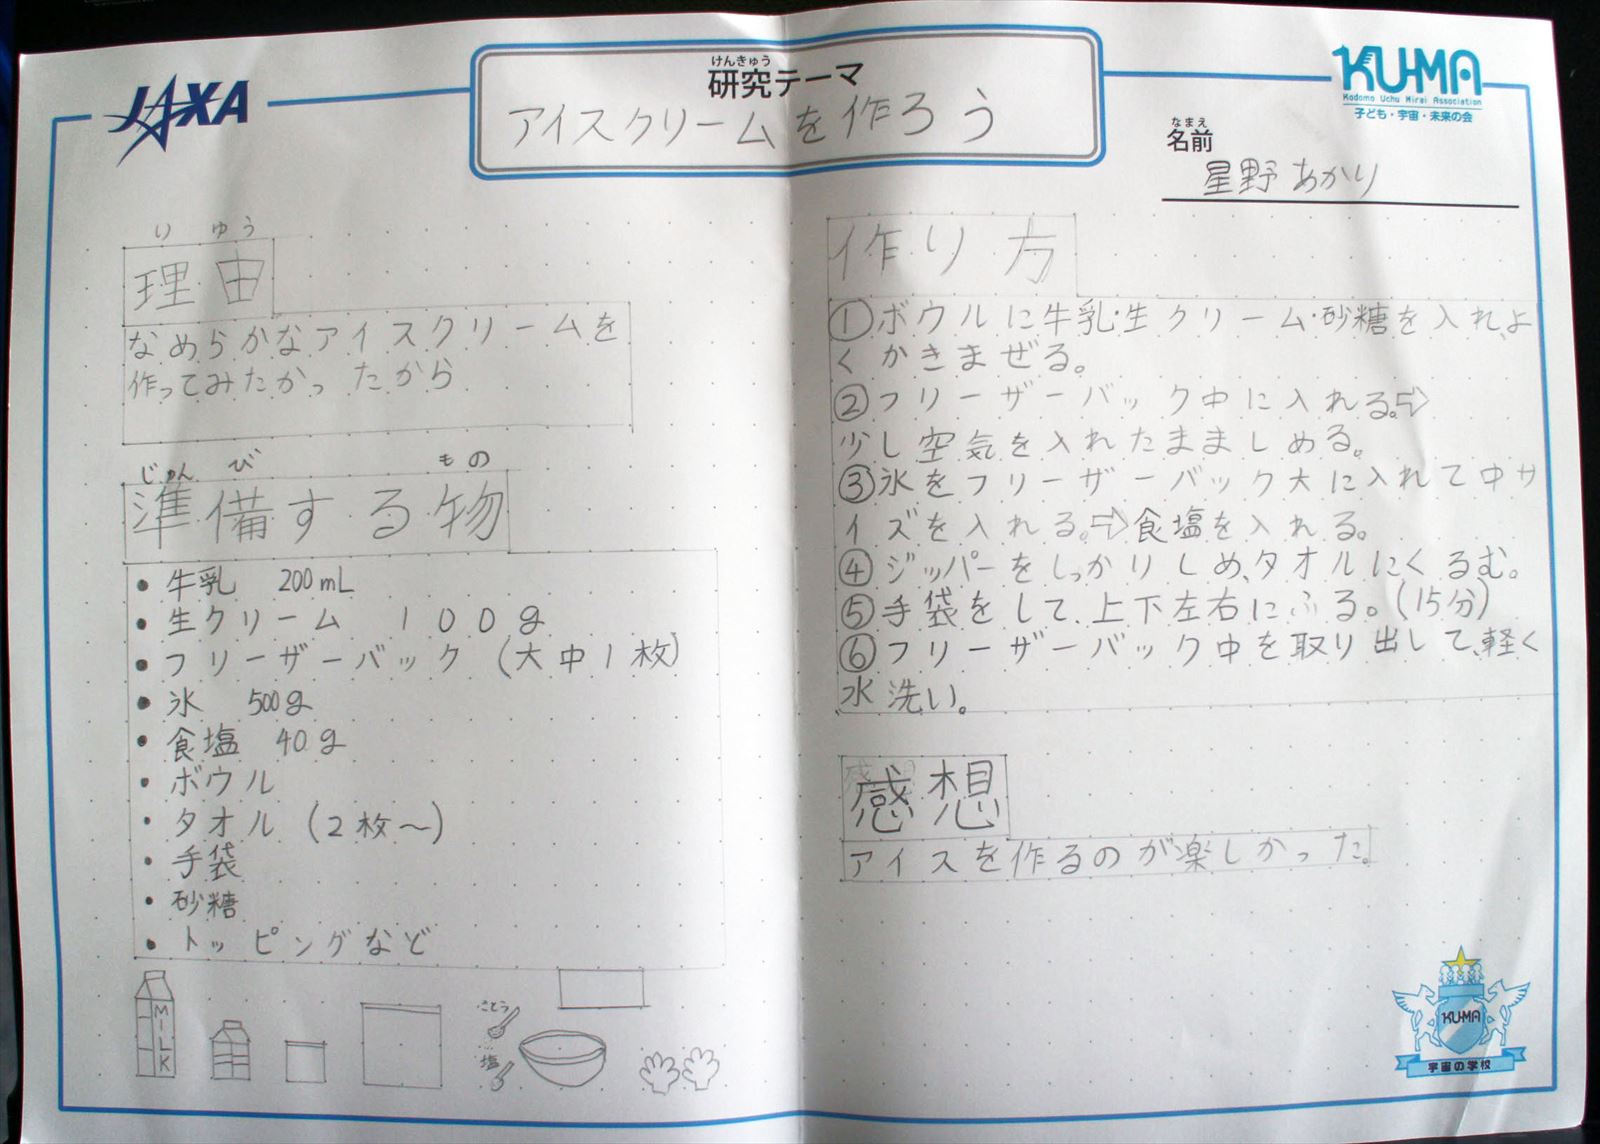 JAXA
けんきゅう
研究テーマ
アイスクリームを作ろう
KU-MA
Kodomo Uchu Mirai Association
子ども・宇宙・未来の会
なまえ
名前
星野あかり
りゆう
理由
なめらかなアイスクリームを
作ってみたかったから
じゅんび もの
準備する物
・牛乳 200mL
・生クリーム 100g
・フリーザーバック(大中1枚)
・氷 500g
・食塩 40g
・ボウル
・タオル (2枚〜)
・手袋
・砂糖
・トッピングなど
MILK
さとう
塩
作り方
①ボウルに牛乳・生クリーム・砂糖を入れ、よ
くかきまぜる。
②フリーザーバック中に入れる。⇨
少し空気を入れたまましめる。
③氷をフリーザーバック大に入れて中サ
イズを入れる。⇨食塩を入れる。
④ジッパーをしっかりしめ、タオルにくるむ。
⑤手袋をして、上下左右にふる。(15分)
⑥フリーザーバック中を取り出して、軽く
水洗い。
感想
アイスを作るのが楽しかった。
KU-MA
宇宙の学校